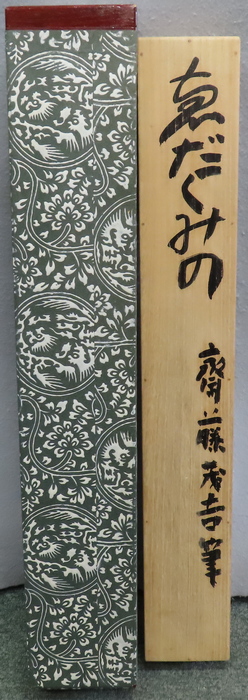 恵だくみの
齋藤茂吉筆